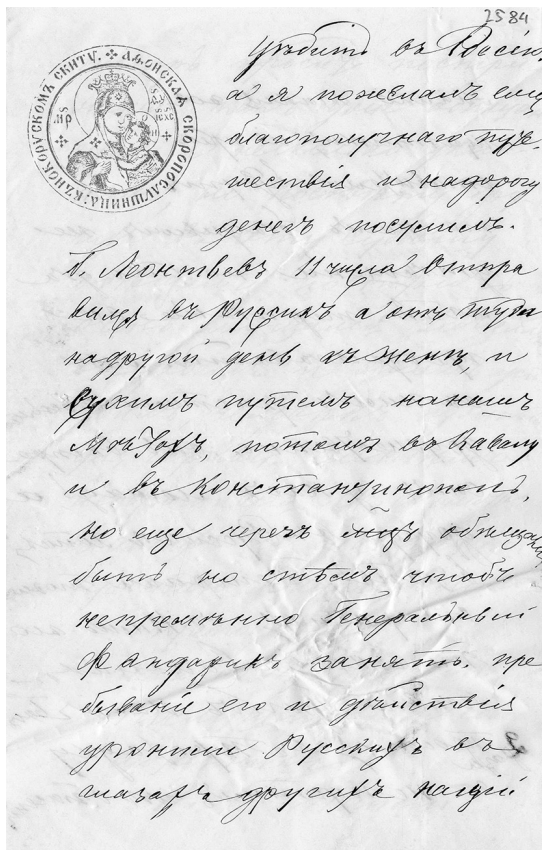 2584
АѲОНСКАЯ СКОРОПОСЛУШНИЦА. КѢ НОВОРУССКОМЪ СКИТУ.
убыть въ Росію
а я пожелалъ ему
благополучнаго путе-
шествія и надорогу
денегъ посулилъ.
П. Леонтьевъ 11 числа отпра
вился въ Руссикъ а отъ туда
надругой день къ Жен и
сухимъ путемъ нанашъ
потомъ въ Кавалу
и въ Константинополь,
но еще черезъ мцъ обѣщался
быть но стѣмъ чтобъ
непремѣнно Генеральный
Фандарикъ занять. пре
бываніе его и дѣйствія
уронили Русскихъ въ
глазахъ другихъ націй